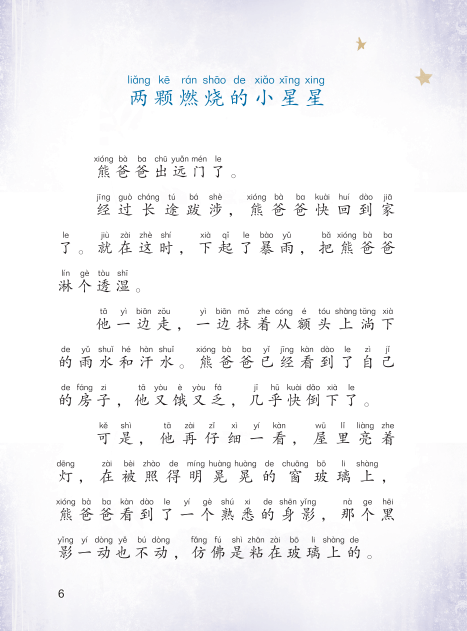 liǎng kē rán shāo de xiǎo xīng xing
两颗燃烧的小星星
xióng bà ba chū yuǎn mén le
熊爸爸出远门了。
jīng guò cháng tú bá shè xióng bà ba kuài huí dào jiā
经过长途跋涉，熊爸爸快回到家
le jiù zài zhè shí xià qǐ le bào yǔ bǎ xióng bà ba
了。就在这时，下起了暴雨，把熊爸爸
lín gè tòu shī
淋个透湿。
tā yì biān zǒu yì biān mǒ zhe cóng é tóu shàng tǎng xià
他一边走，一边抹着从额头上淌下
de yǔ shuǐ hé hàn shuǐ xióng bà ba yǐ jīng kàn dào le zì jǐ
的雨水和汗水。熊爸爸已经看到了自己
de fáng zi tā yòu è yòu fá jī hū kuài dǎo xià le
的房子，他又饿又乏，几乎快倒下了。
kě shì tā zài zǐ xì yí kàn wū lǐ liàng zhe
可是，他再仔细一看，屋里亮着
dēng zài bèi zhào de míng huǎng huǎng de chuāng bō li shàng
灯，在被照得明晃晃的窗玻璃上，
xióng bà ba kàn dào le yí gè shú xi de shēn yǐng nà ge hēi
熊爸爸看到了一个熟悉的身影，那个黑
yǐng yí dòng yě bú dòng fǎng fú shì zhān zài bō li shàng de
影一动也不动，仿佛是粘在玻璃上的。
6